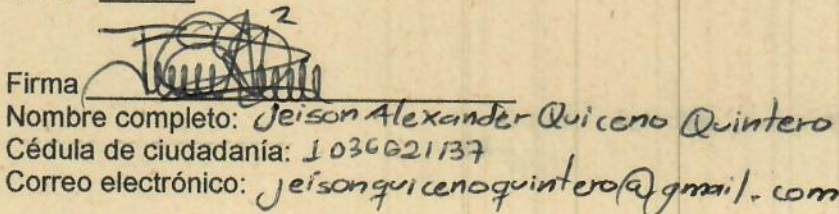 Firma
Nombre completo: Jeison Alexander Quiceno Quintero
Cédula de ciudadanía: 1036621137
Correo electrónico: jeisonquicenoquintero@gmail.com